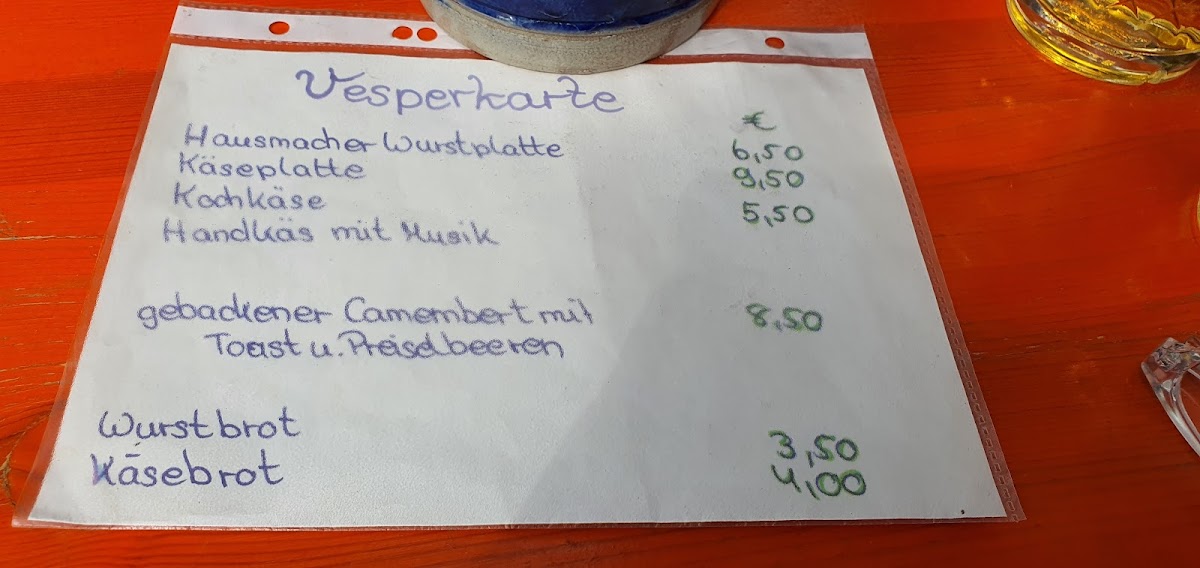 Vesperkarte
€
Hausmacher Wurstplatte 6,50
Käseplatte 9,50
Kochkäse 5,50
Handkäs mit Musik
gebackener Camembert mit 8,50
Toast u. Preiselbeeren
Wurstbrot 3,50
Käsebrot 4,00